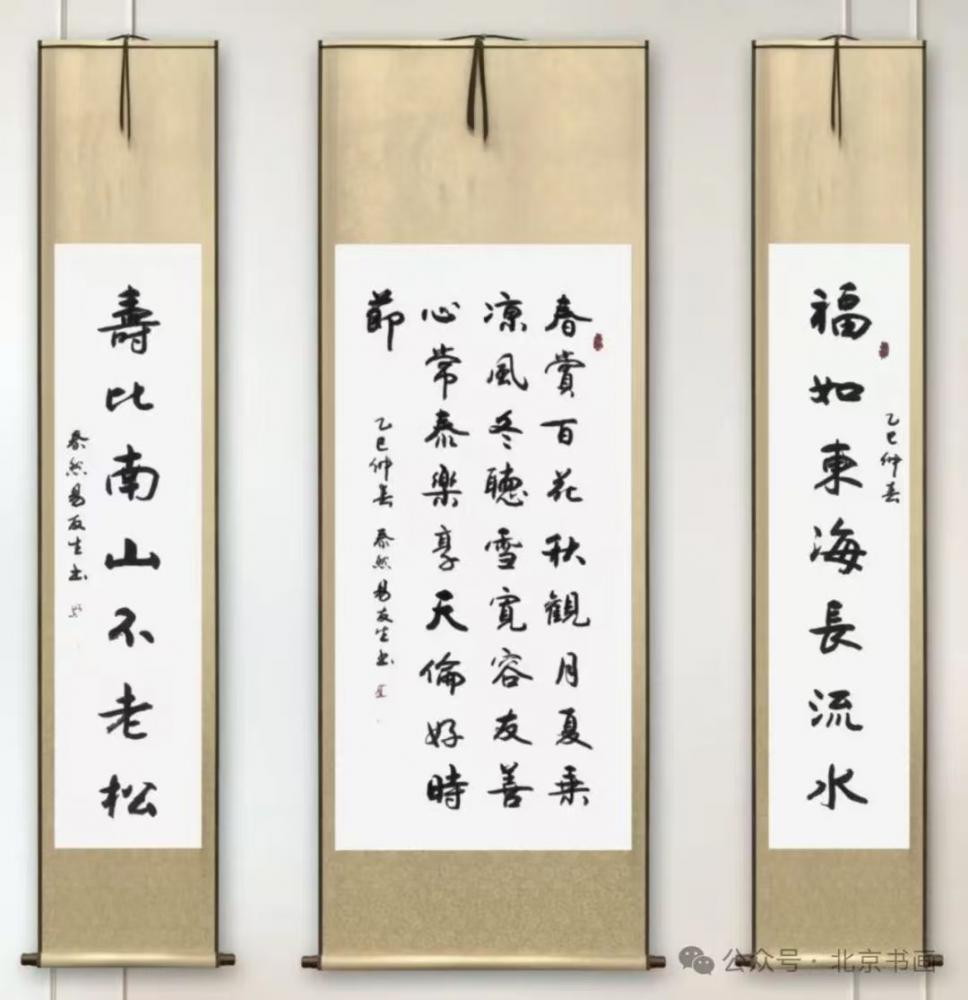 乙巳仲春
福如東海長流水
春賞百花秋観月夏乗
凉風冬聽雪寬容友善
心常泰樂享天倫好時
節
乙巳仲春 泰然易友生书
壽比南山不老松
泰然易友生书
公众号·北京书画